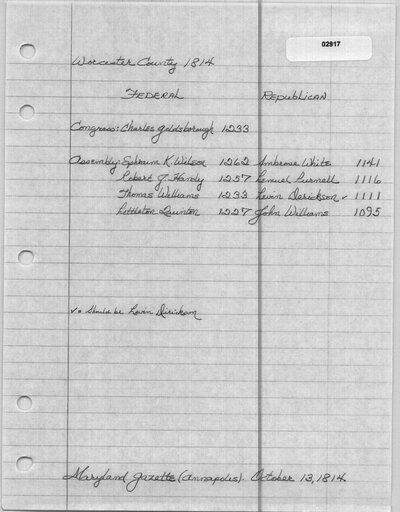 02917
Worcester County 1814
FEDERAL REPUBLICAN
Congress: Charles Goldsborough 1233
Assembly: Ephraim K. Wilson 1262 Ambrose White 1141
Robert J. Handy 1257 Lemuel Purnell 1116
Thomas Williams 1233 Levin Derickson ✓ 1111
Littleton Quinton 1227 John Williams 1095
✓ = Should be Levin Dirickson
Maryland Gazette (Annapolis). October 13, 1814